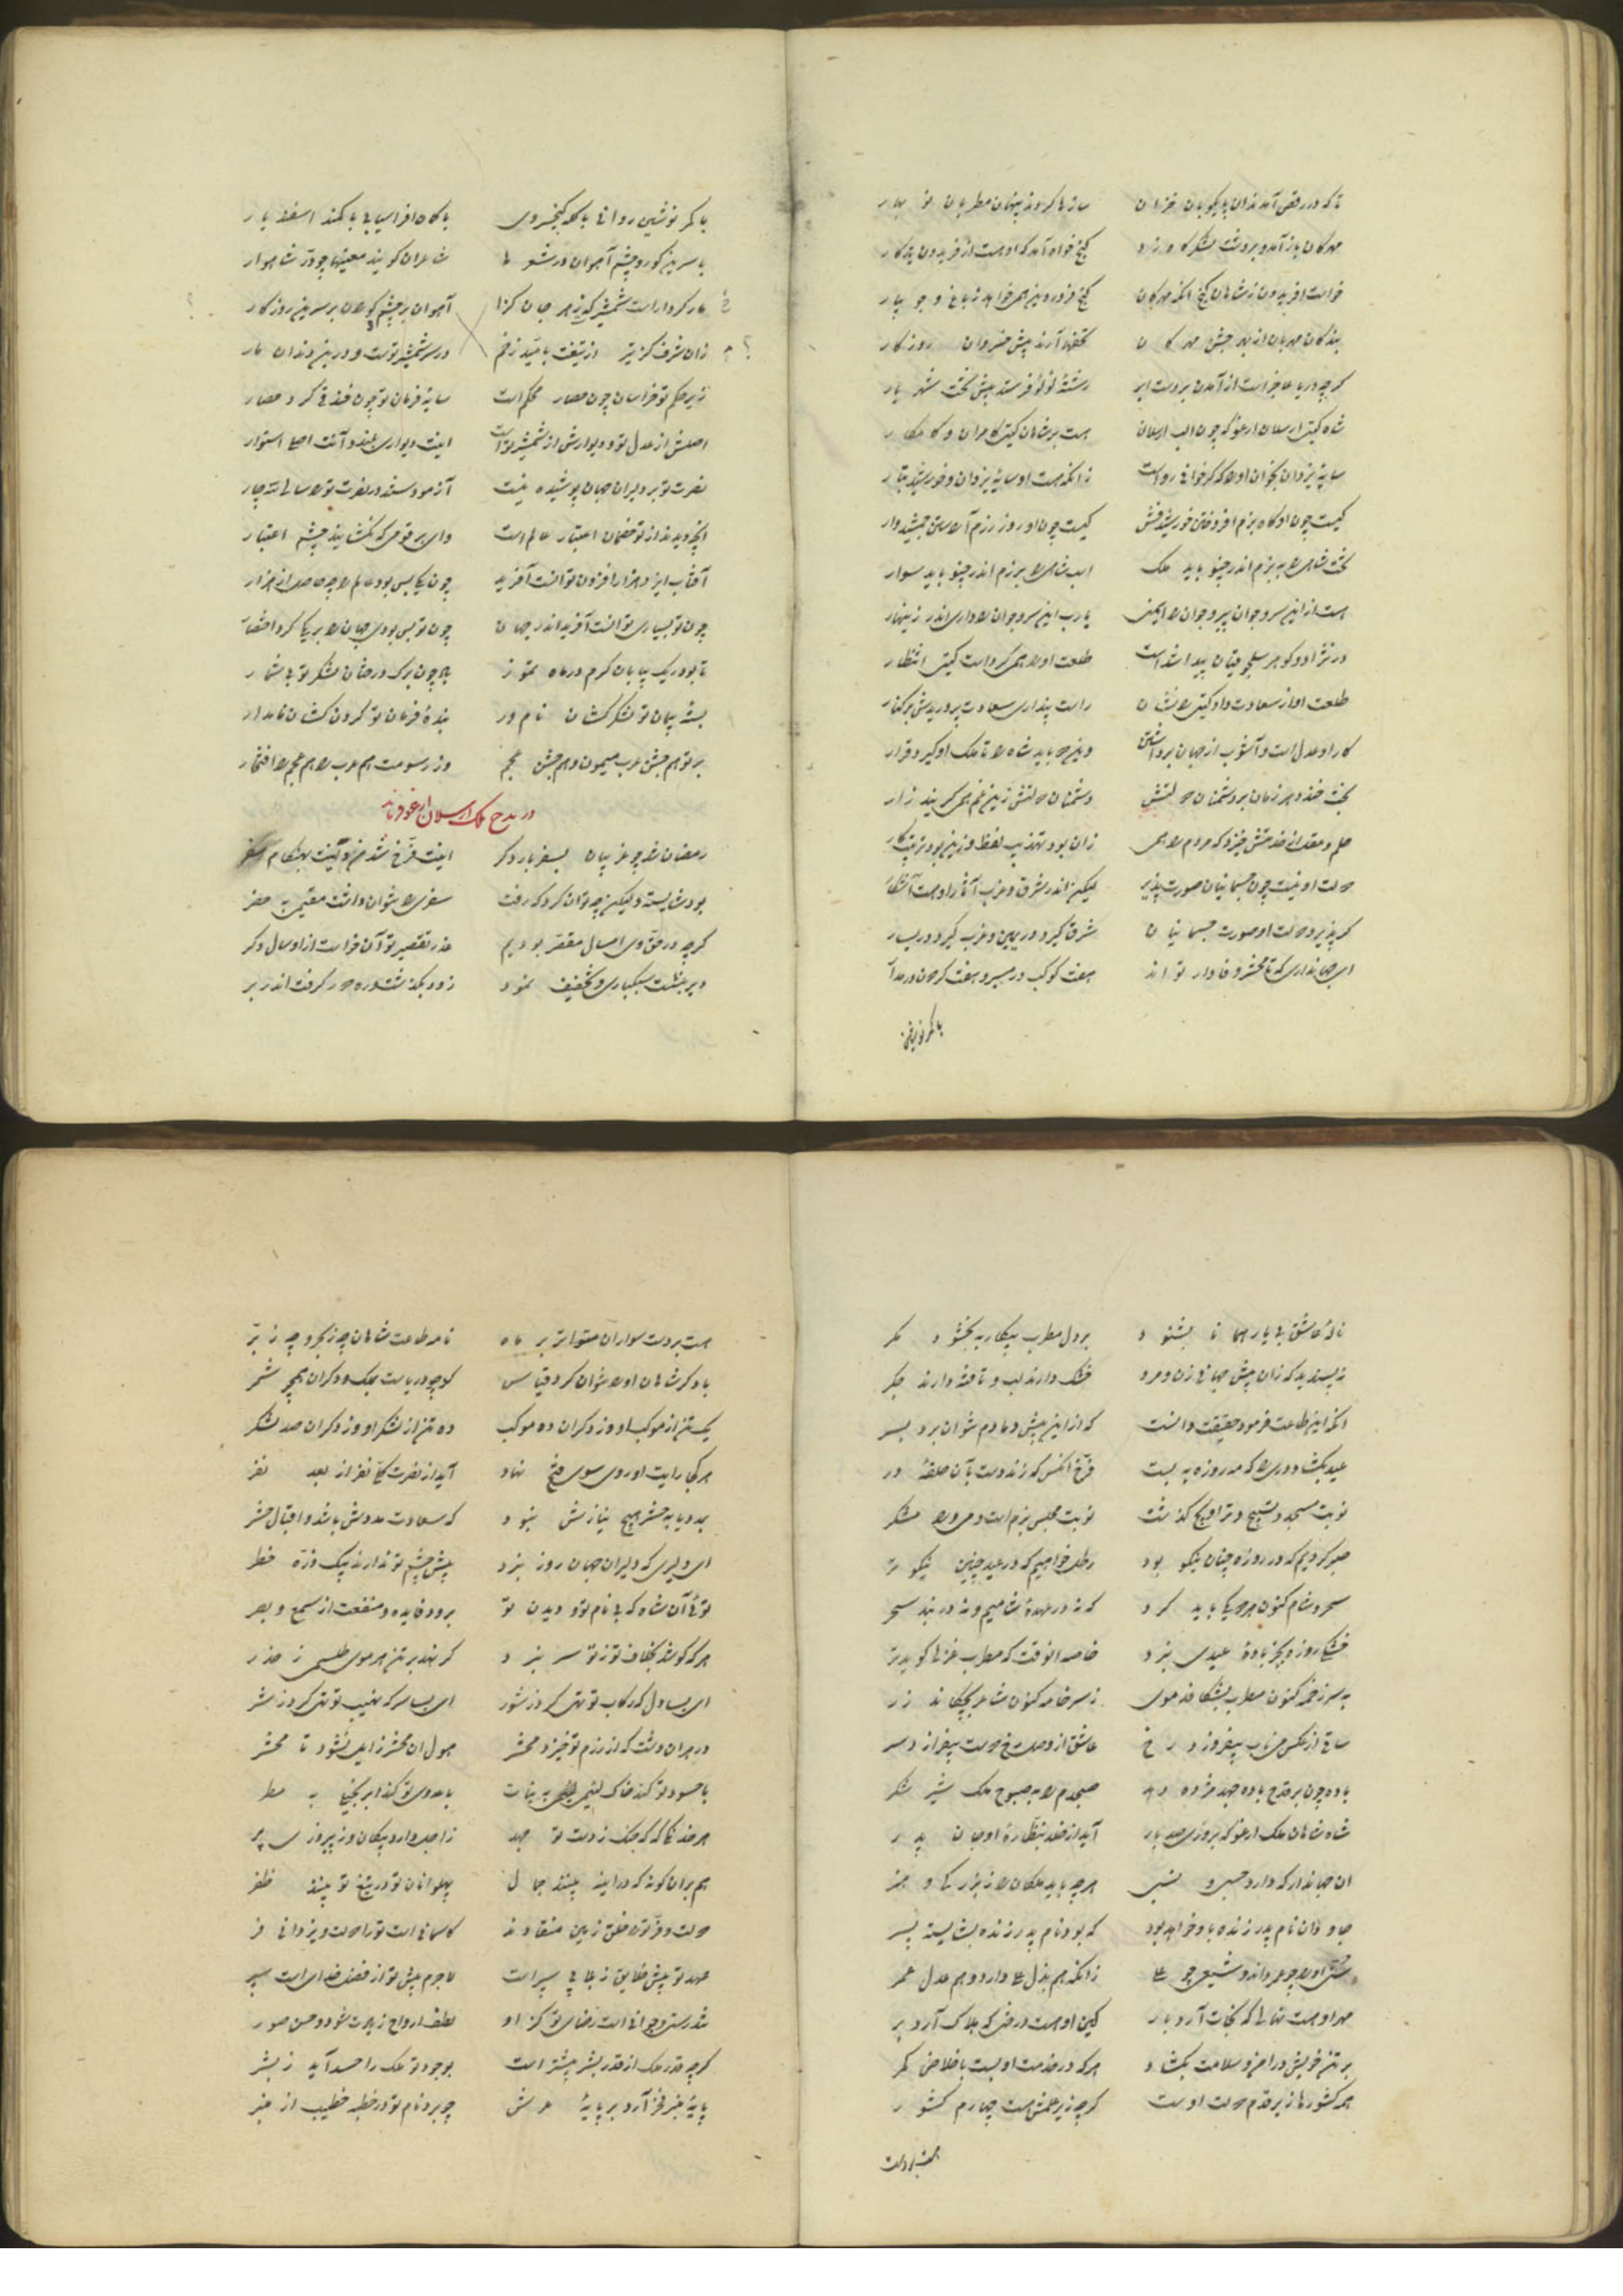 تا که در رقص آمدند آن پایکوبان خزان سازها کردند پنهان مطربان نو بهار
مهرکان باز آمد و بر دشت لشکرگاه زد گنج خواه آمد که او هست از فریدون یادکار
خواست افریدون ز شاهان گنج انکه مهرکان گنج فروردین همی خواهد ز باغ و جویبار
بندکان مهربان از بهر جشن مهرکان تحفها آرند پیش خسروان روزکار
کرچه دریا عاجز است از آمدن بر دست ابر رشتهٔ لؤلؤ فرستد پیش تخت شهریار
شاه کیتی ارسلان ارغو که چون الب ارسلان هست بر شاهان کیتی کامران و کامکار
سایهٔ یزدان بخوان او را که کر خوانی رواست زانکه هست او سایهٔ یزدان و خورشید تبار
کیست چون او کاه بزم افروختن خورشیدفش کیست چون او روز رزم آراستن جمشیدوار
تخت شاهی را به بزم اندر چنو باید ملک اسب شاهی را برزم اندر چنو باید سوار
هست از این سرو جوان پیر و جوان را ایمنی یارب این سرو جوان را داری اندر زینهار
در نژاد و کوهر سلجوقیان پیدا شد است طلعت او را همی کرد است کیتی انتظار
طلعت او از سعادت داد کیتی را نشان راست پنداری سعادت پروریدش در کنار
کار او عدل است و آشوب از جهان برداشتن وین دو باید شاه را تا ملک او کیرد قرار
بخت خندد هر زمان بر دشمنان دولتش دشمنان دولتش زین غم همی کریند زار
حلم و عقل از خدمتش خیزد که مردم را همی زان بود تهذیب لفظ و زین بود ترتیب کار
دولت او نیست چون جسمانیان صورت پذیر لیکن اندر شرق و غرب آثار او هست آشکار
کر پذیرد دولت او صورت جسمانیان شرق کیرد در یمین و غرب کیرد در یسار
ای جهانداری که تا محشر وفادار تو اند هفت کوکب در مسیر و هفت کردون در مدار
با کمر نوشین
با کمر نوشین روانی با کله کیخسروی با کلاه افراسیابی با کمند اسفندیار
با سرین کور و چشم آهوان در شعرها شاعران کویند معنیها چو در شاهوار
مار کردار است شمشیر کزین هر جان کزا آهوان بر چشم کوران بر سرین روزکار
زان شرف کز تیر و از تیغت یابند زخم در سر شمشیر تست و در بن دندان مار
زیر حکم تو خراسان چون حصار محکم است سایهٔ فرمان تو چون خندقی کرد حصار
اصلش از عدل تو و دیوارش از شمشیر تو است اینت دیواری بلند و آنت اصلی استوار
نصرت تو بر دلیران جهان پوشیده نیست آزمودستند در نصرت ترا سالی سه چار
آنچه دیدند از تو خصمان اعتبار عالم است وای بر قومی که نکشایند چشم اعتبار
آفتاب ایزد هزار افزون توانست آفرید چون یکی بس بود عالم را چه حاصل از هزار
چون تو بسیاری توانست آفرید اندر جهان چون تو بس بودی جهان را بر یکی کرد اختصار
تا بود ریک بیابان کرم در ماه تموز باد چون برک درختان لشکر تو بیشمار
بستهٔ پیمان تو لشکرکشان نامور بندهٔ فرمان تو کردن کشان نامدار
بر تو هم جشن عرب میمون و هم جشن عجم وز رسومت هم عرب را هم عجم را افتخار
در مدح ملک ارسلان ارغو فرماید
رمضان شد چو غریبان بسفر بار دکر اینت فرخ شدن و اینت بهنکام سفر
بود شایسته ولیکن چه توان کرد که رفت سفری را نتوان داشت مقیمی به حضر
کرچه در حق وی امسال مقصر بودیم عذر تقصیر توان خواست از او سال دکر
دیر ننشست سبکباری و تخفیف نمود زود بکذشت و ره دور کرفت اندر بر
نالهٔ عاشق بی یار همانا بشنود بر دل مطرب بیکار ببخشود مکر
نپسندید که زان بیش جهانی زن و مرد خشک دارند لب و تافته دارند جکر
انکه این طاعت فرمود حقیقت دانست که از این بیش دمادم نتوان برد بسر
عید بکشاد دری را که مه روزه به بست فرخ آنکس که زند دست بآن حلقهٔ در
نوبت مسجد و تسبیح و تراویح کذشت نوبت مجلس بزم است و می و رود و شکر
صبر کردیم که در روزه چنان نیکو بود رطل خواهیم که در عید چنین نیکوتر
سحر و شام کنون هر دو یکی باید کرد که نه در عهدهٔ شامیم و نه در بند سحر
خشکی روزه بجز بادهٔ عیدی نبرد خاصه انوقت که مطرب غزلی کوید تر
به سر زخمه کنون مطرب بشکافد موی ز سر خامه کنون شاعر بچکاند زر
ساقی از عکس می ناب بیفروزد رخ عاشق از وصل رخ دوست بیفرازد سر
باده چون بر قدح باده جهد مژده دهد صبحدم را به صبوح ملک شیر شکر
شاه شاهان ملک ارغو که بروزی صد بار آید از خلد بنظارهٔ او جان پدر
ان جهاندار که دارد حسب و نسبی هر چه باید ملکان را ز بزرکی و هنر
جاودان نام پدر زنده باو خواهد بود که بود نام پدر زنده بشایسته پسر
سنی او را چو عمر داند و شیعی چو علی زانکه هم بذل علی دارد و هم عدل عمر
مهر او هست نهالی که نجات آرد بار کین او هست درختی که هلاک آرد بر
بر تن خویش در امن و سلامت بکشاد هر که در خدمت او بست باخلاص کمر
همه کشورها زیر قدم دولت اوست کرچه زیر علمش هست چهارم کشور
هست بر دست
هست بر دست سواران متواتر بر ماه نامه طاعت شاهان چه ز بحر و چه ز بر
با دکر شاهان او را نتوان کرد قیاس کو چو دریاست بملک و دکران همچو شمر
یک تن از موکب او وز دکران ده موکب ده تن از لشکر او وز دکران صد لشکر
هر کجا رایت او روی سوی فتح نهاد آید از نصرت حق نفر از بعد نفر
بمدد یا به حشر هیچ نیازش نبود که سعادت مددش باشد و اقبال حشر
ای دلیری که دلیران جهان روز نبرد پیش چشم تو ندارند بیک ذره خطر
توئی آن شاه که بی نام تو و دیدن تو برود فایده و منفعت از سمع و بصر
هر که کوشد بخلاف تو ز تو سر نبرد کر نهد بر تن هر موی طلسمی ز حذر
ای بسا دل که رکاب تو تهی کرد ز شور ای بسا سر که نهیب تو تهی کرد ز شر
در هر ان دشت که از رزم تو خیزد محشر هول ان محشر زایل نشود تا محشر
با حسود تو کند خاک لئیمی به نبات با عدوی تو کند ابر بخیلی به مطر
هر خدنکی که که جنک ز دست تو جهد ز اجل دارد پیکان و ز پیروزی پر
هم بر ان کونه که در اینه بینند جمال پهلوانان تو در تیغ تو بینند ظفر
دولت و فر ترا خلق زمین منقادند کاسمانی است ترا دولت و یزدانی فر
عهد تو پیش خلایق ز بلاها سپر است لاجرم پیش تو از فضل خدای است سپر
تندرستی و جوانی است رضای تو کز او لطف ارواح زیادت شود و حسن صور
کرچه قدر ملک از قدر بشر بیشتر است بوجود تو ملک را حسد آید ز بشر
پایهٔ منبر فخر آرد بر پایهٔ عرش چو برد نام تو در خطبه خطیب از منبر